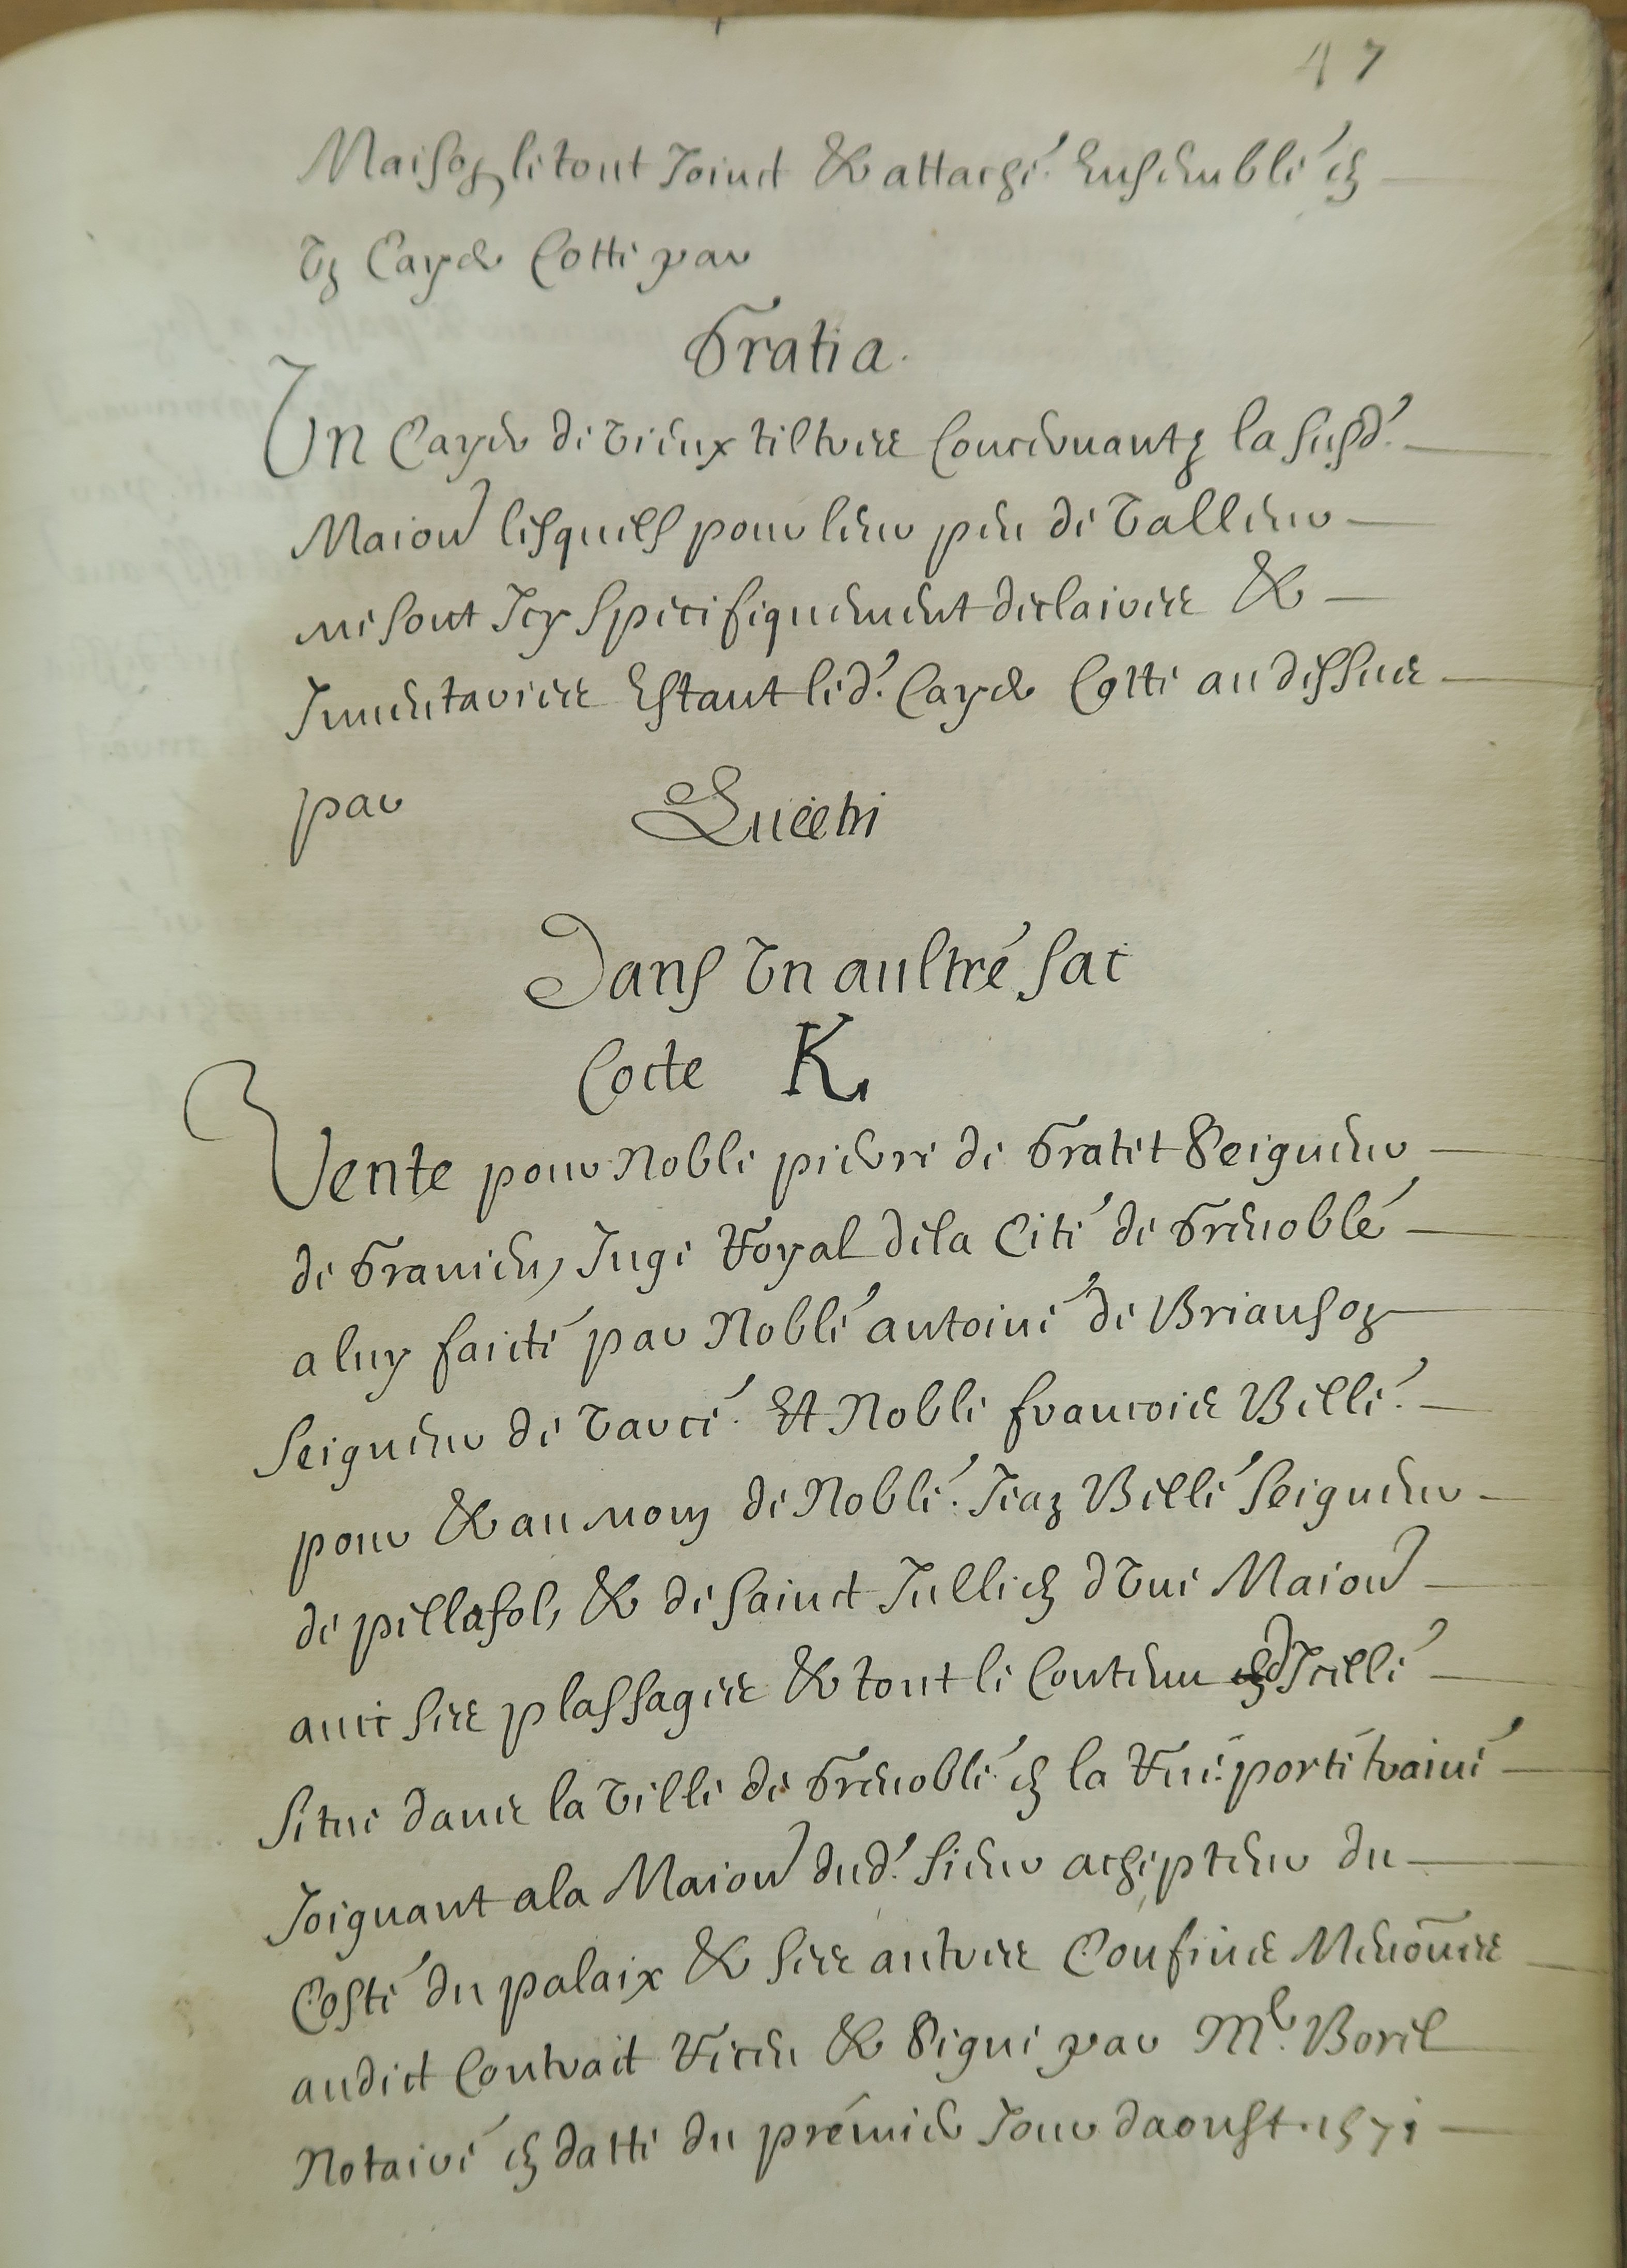 47
Maison, le tout Joinct & attaché Ensemble en
Un Cayer Cotté par
Gratia.
Un Cayer de vieux tiltres Concernantz la susd.
Maison lesquels pour leur peu de valleur
ne sont Icy specifiquement declaires &
Inventaries Estant led. Cayer Cotté au dessus
par Lucetri
Dans Un aultre sac
Cocte K
Vente pour Noble pierre de Gratet Seigneur
de Granieu, Juge Royal de la Cité de Grenoble
a luy faicte par Noble antoine de Brianson
seigneur de Varce Et Noble francois Belle
pour & au nom de Noble Jean Belle seigneur
de pellafol, & de sainct Jullien dUne Maison
avec ses plassages & tout le Contenu dIcelle
situe dans la ville de Grenoble en la Rue portetraine
Joignant a la Maison dud. sieur achepteur du
Costé du palaix & ses autres Confins Menones
audict Contract Receu & Signe par Me. Borel
Notaire en datte du premier Jour daoust .1571